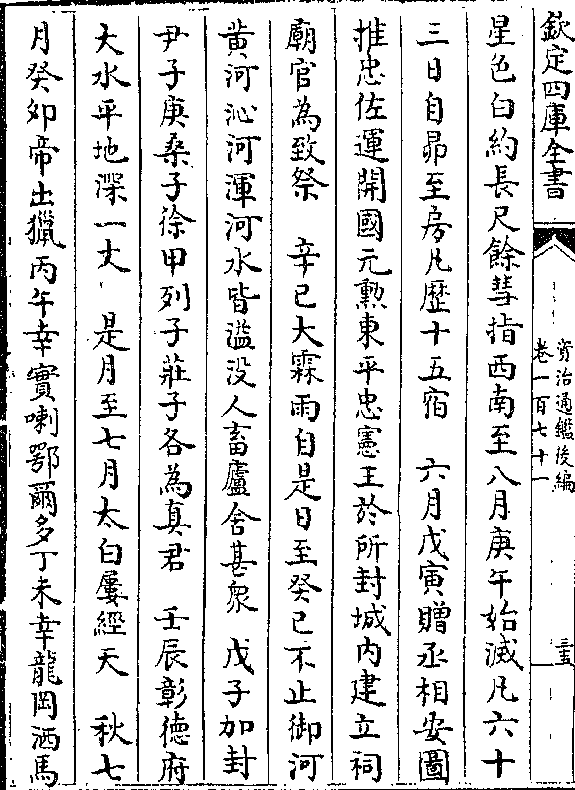 欽定四庫全書
資治通鑑後編
卷一百七十一
三五
星色白約長尺餘彗指西南至八月庚午始滅凡六十
三日自昴至房凡歷十五宿　六月戊寅贈丞相安圖
推忠佐運開國元勲東平忠憲王於所封城内建立祠
廟官為致祭　辛巳大霖雨自是日至癸巳不止御河
黄河沁河渾河水皆溢没人畜廬舍甚衆　戊子加封
尹子庚桑子徐甲列子莊子各為真君　壬辰彰德府
大水平地深一丈　是月至七月太白屢經天　秋七
月癸夘帝出獵丙午幸實喇鄂爾多丁未幸龍岡洒馬